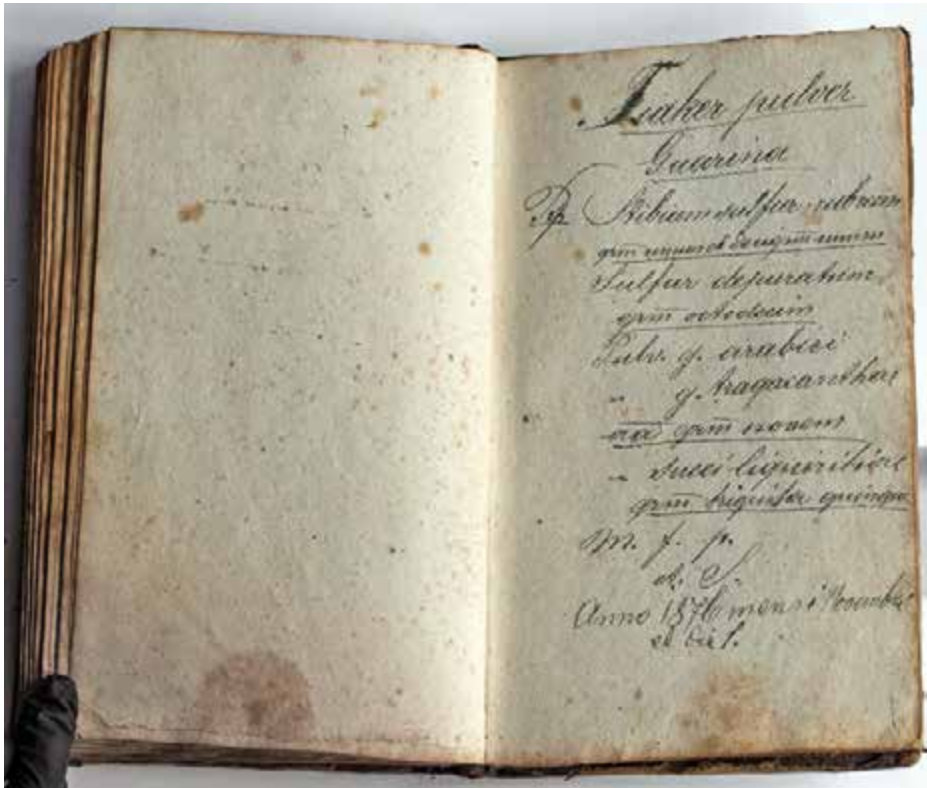 Fiaker pulver
Guarina
Rp. Stibium sulfur. rubrum
grm
Sulfur depuratum
grm octodecim
Pulv. g. arabici
„ g. tragacanthae
aa grm novem
„ succi liquiritiae
grm triginta quinque
M. f. p.
d. S.
Anno 1876 mensi Novembri